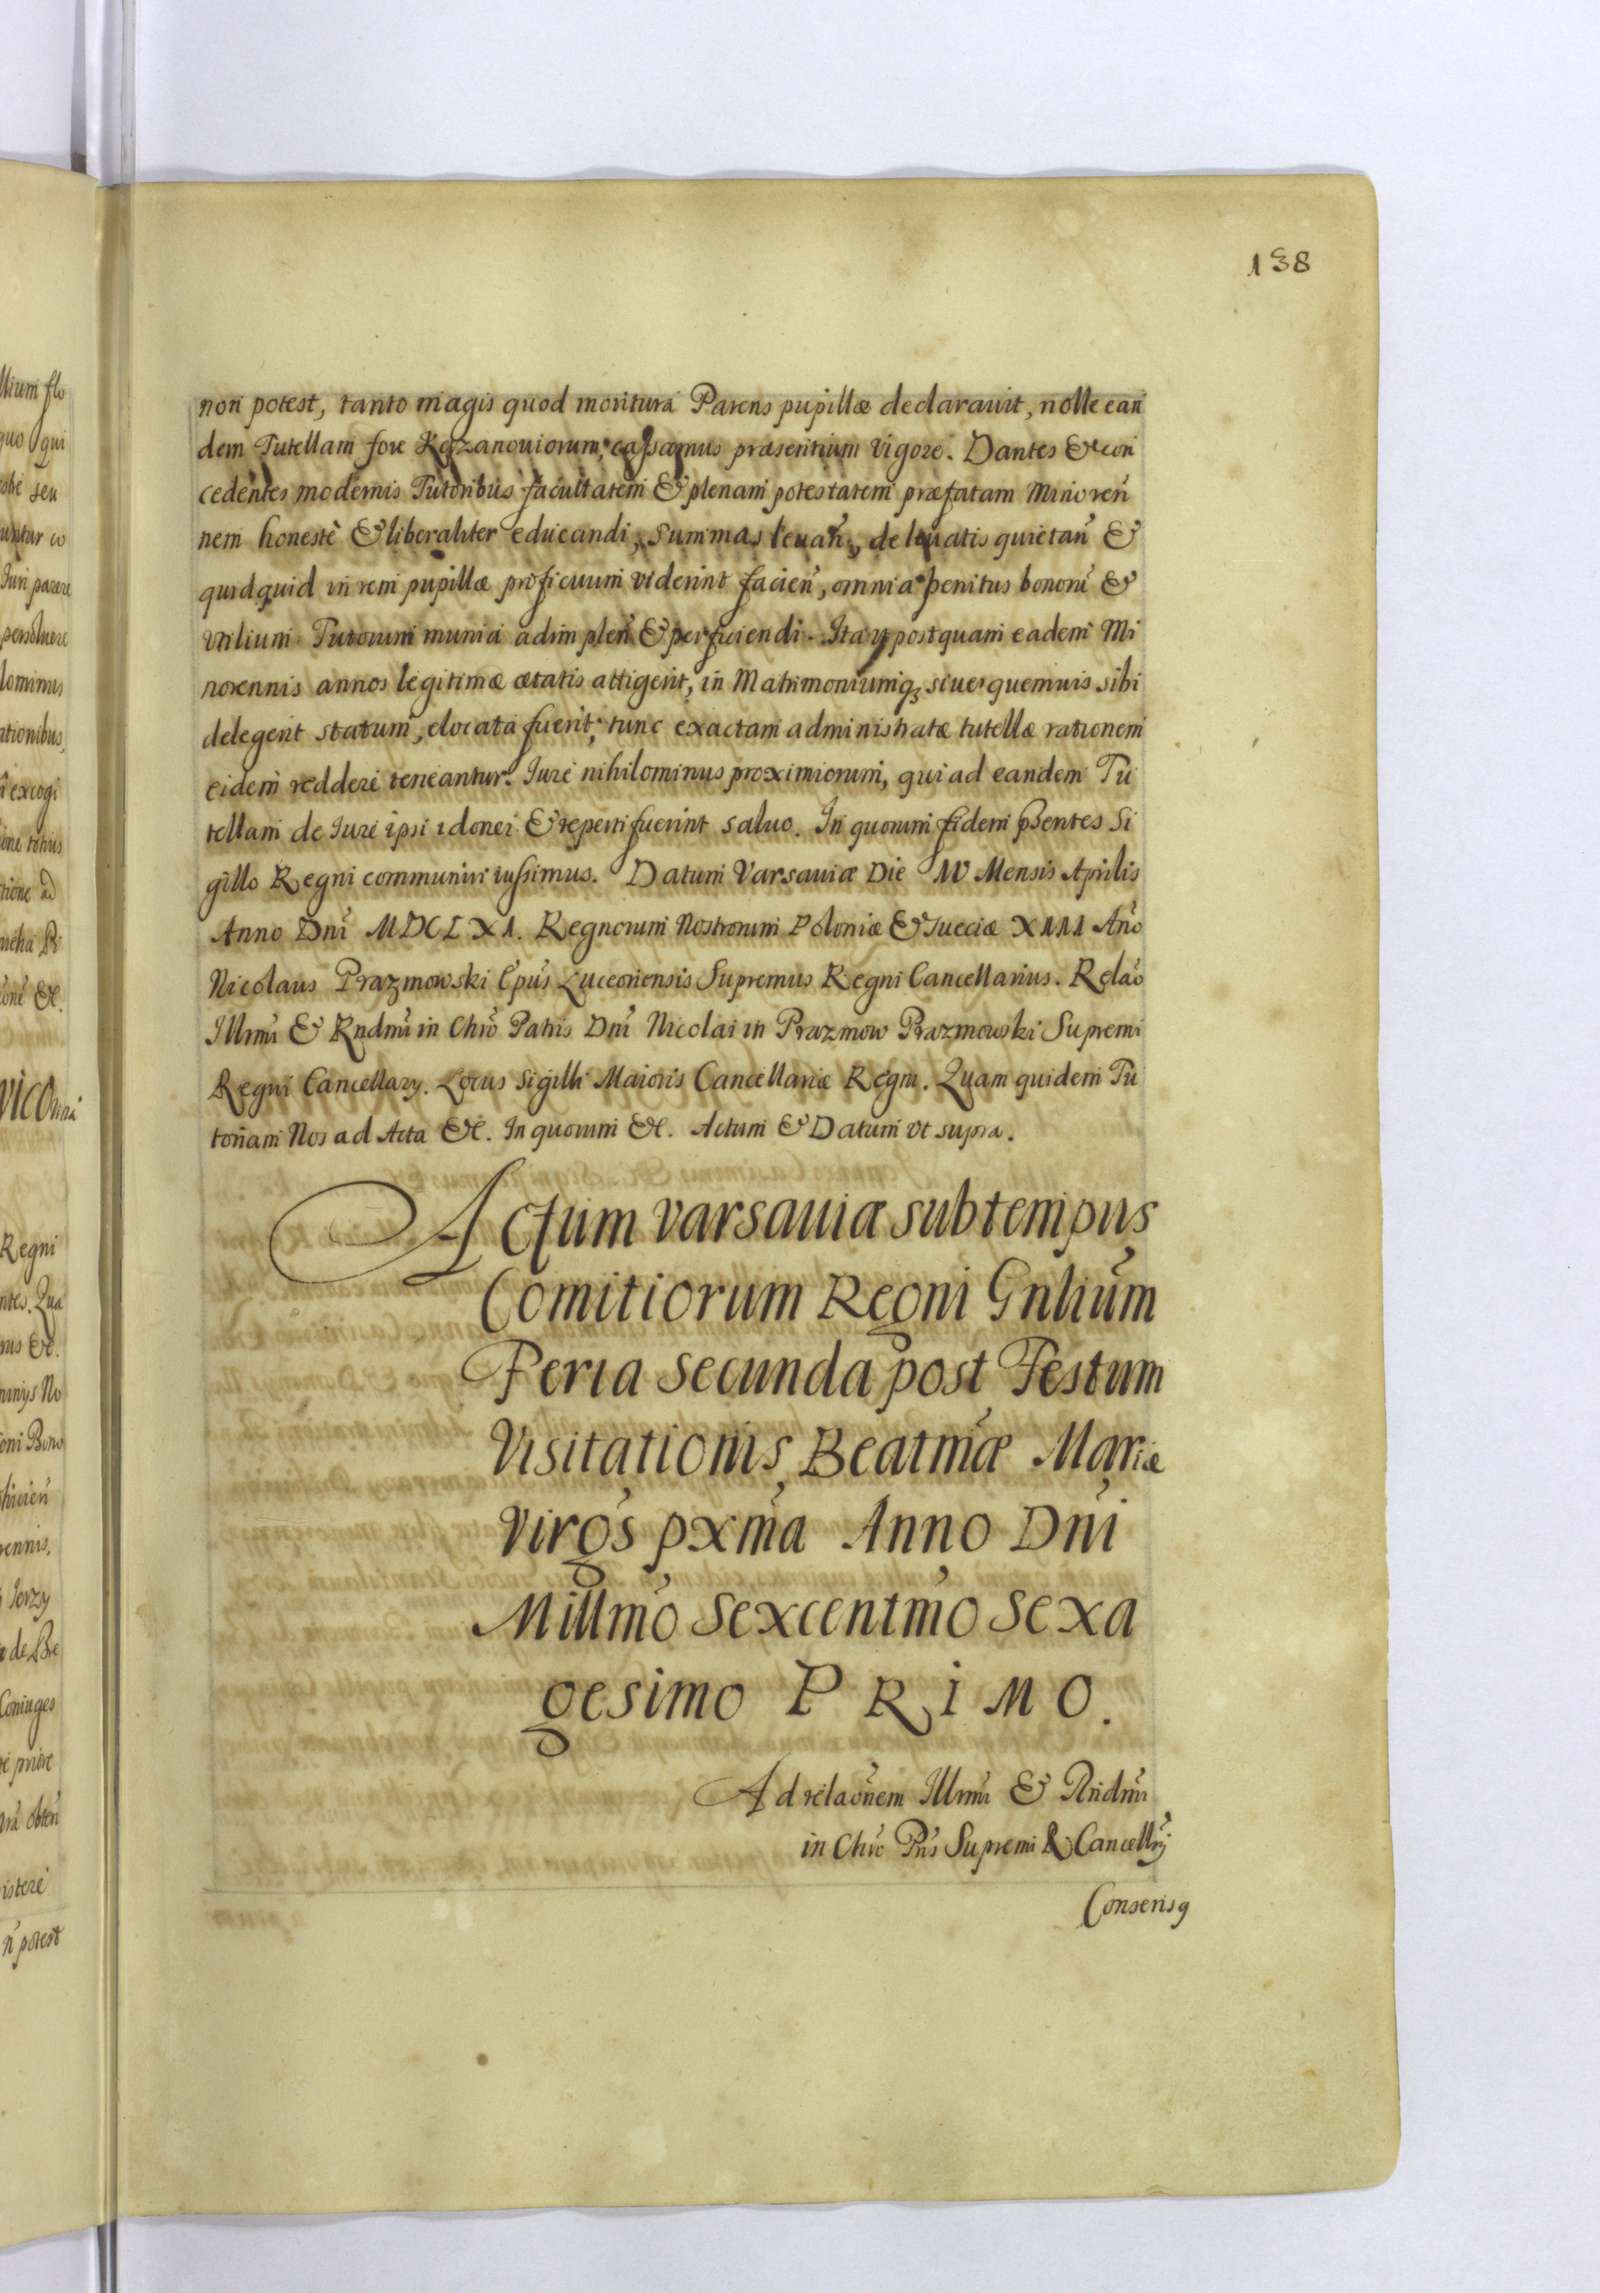 138
non potest, tanto magis quod moritura Parens pupillæ declarauit, nolle ean
dem Tutellam fore Kożanouiorum, cassamus præsentium vigore. Dantes & con
cedentes modernis Tutoribus facultatem & plenam potestatem præfatam Minoren̄
nem honestè & liberaliter educandi, summas leuan̄, de leuatis quietan̄ &
quidquid in rem pupillæ proficuum viderint facien̄, omnia penitus bonorū &
vtilium Tutorum munia adimplen̄ & perficiendi. Ita vt postquam eadem Mi
norennis annos legitimæ ætatis attigerit, in Matrimoniumq3 siue quemuis sibi
delegerit statum, elocata fuerit, tunc exactam administratæ tutellæ rationem
eidem reddere teneantur. Iure nihilominus proximiorum, qui ad eandem Tu
tellam de Iure ipsi idonei & reperti fuerint saluo. In quorum fidem pn̄tes Si
gillo Regni communiri iussimus. Datum Varsauiæ Die Mensis Aprilis
Anno Dnī MDCLXI. Regnorum Nostrorum Poloniæ & Sueciæ XIII Ano
Nicolaus Prazmowski Epus Luceoriensis Supremus Regni Cancellarius. Relao
Illrmi & Rndmi in Chro Patris Dni Nicolai in Prazmow Prazmowski Supremi
Regni Cancellary. Locus Sigilli Maioris Cancellariæ Regni. Quam quidem Tu
toriam Nos ad Acta &c. In quorum &c. Actum & Datum vt supra.
Actum varsauiæ sub tempus
Comitiorum Regni Gnlium
Feria secunda post Festum
Visitationis Beatmæ Mariæ
Virgs pxma Anno Dni
Millmo sexcentmo sexa
gesimo PRIMO.
Ad relaonem Illrmi & Rndmi
in Chro Pris Supremi R Cancellrij
Consens9